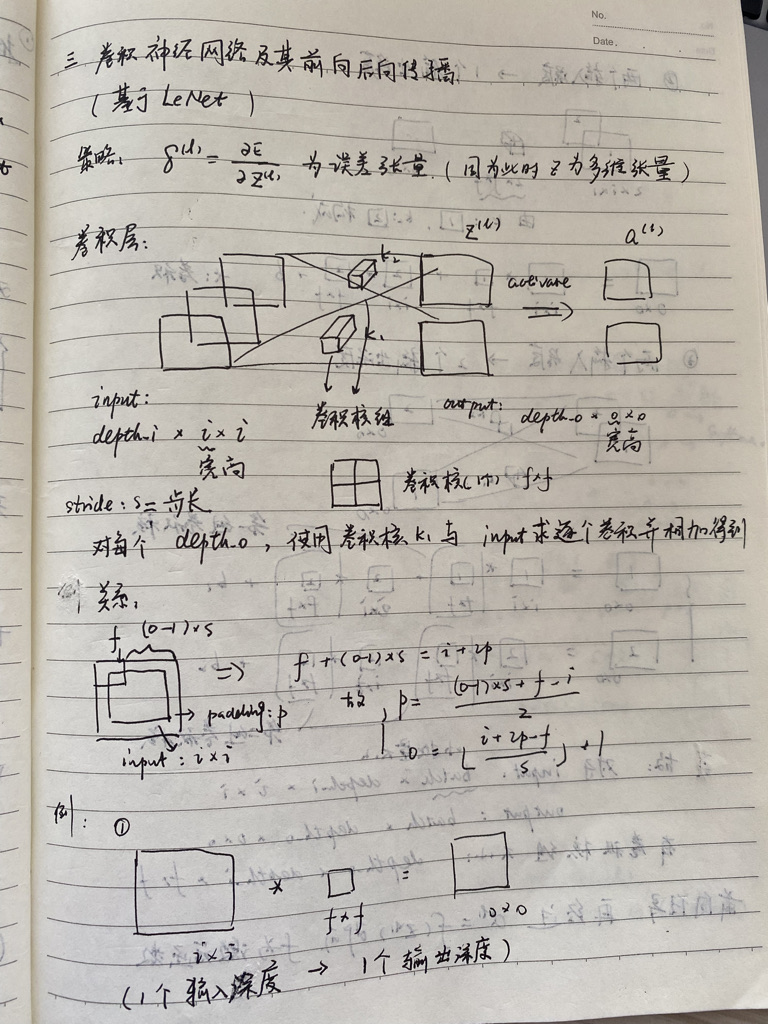 No.
Date.
三 卷积神经网络及其前向后向传播.
(基于 LeNet )
策略: δ^(l) = ∂E/∂Z^(l) 为误差张量. (因为此时 Z 为多维张量)
卷积层:
Z^(l) a^(l)
k₂
activate
k₁
input: 卷积核组 output: depth_o × o×o
depth_i × i×i 宽高
宽高
卷积核(小) f×f
stride: s = 步长
对每个 depth_o, 使用卷积核 k₁ 与 input 求逐个卷积并相加得到
关系:
f (o-1)×s
⇒ f + (o-1)×s = i+2p
→ padding: p 故, p = ((o-1)×s + f - i)/2
input: i×i o = ⌊(i+2p-f)/s⌋ + 1
例: ①
* =
f×f o×o
i×i
(1个输入深度 → 1个输出深度)